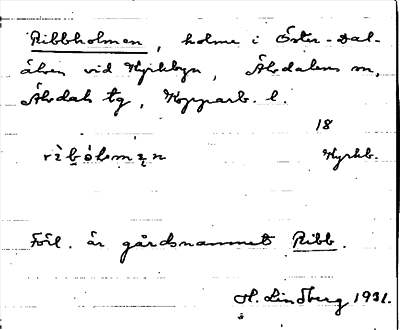 Ribbholmen, holme i Öster-Dal-
älven vid Kyrkbyn, Älvdalens sn,
Älvdals tg, Kopparb. l.
18
Kyrkb.
Förl. är gårdsnamnet Ribb.
H. Lindberg 1931.